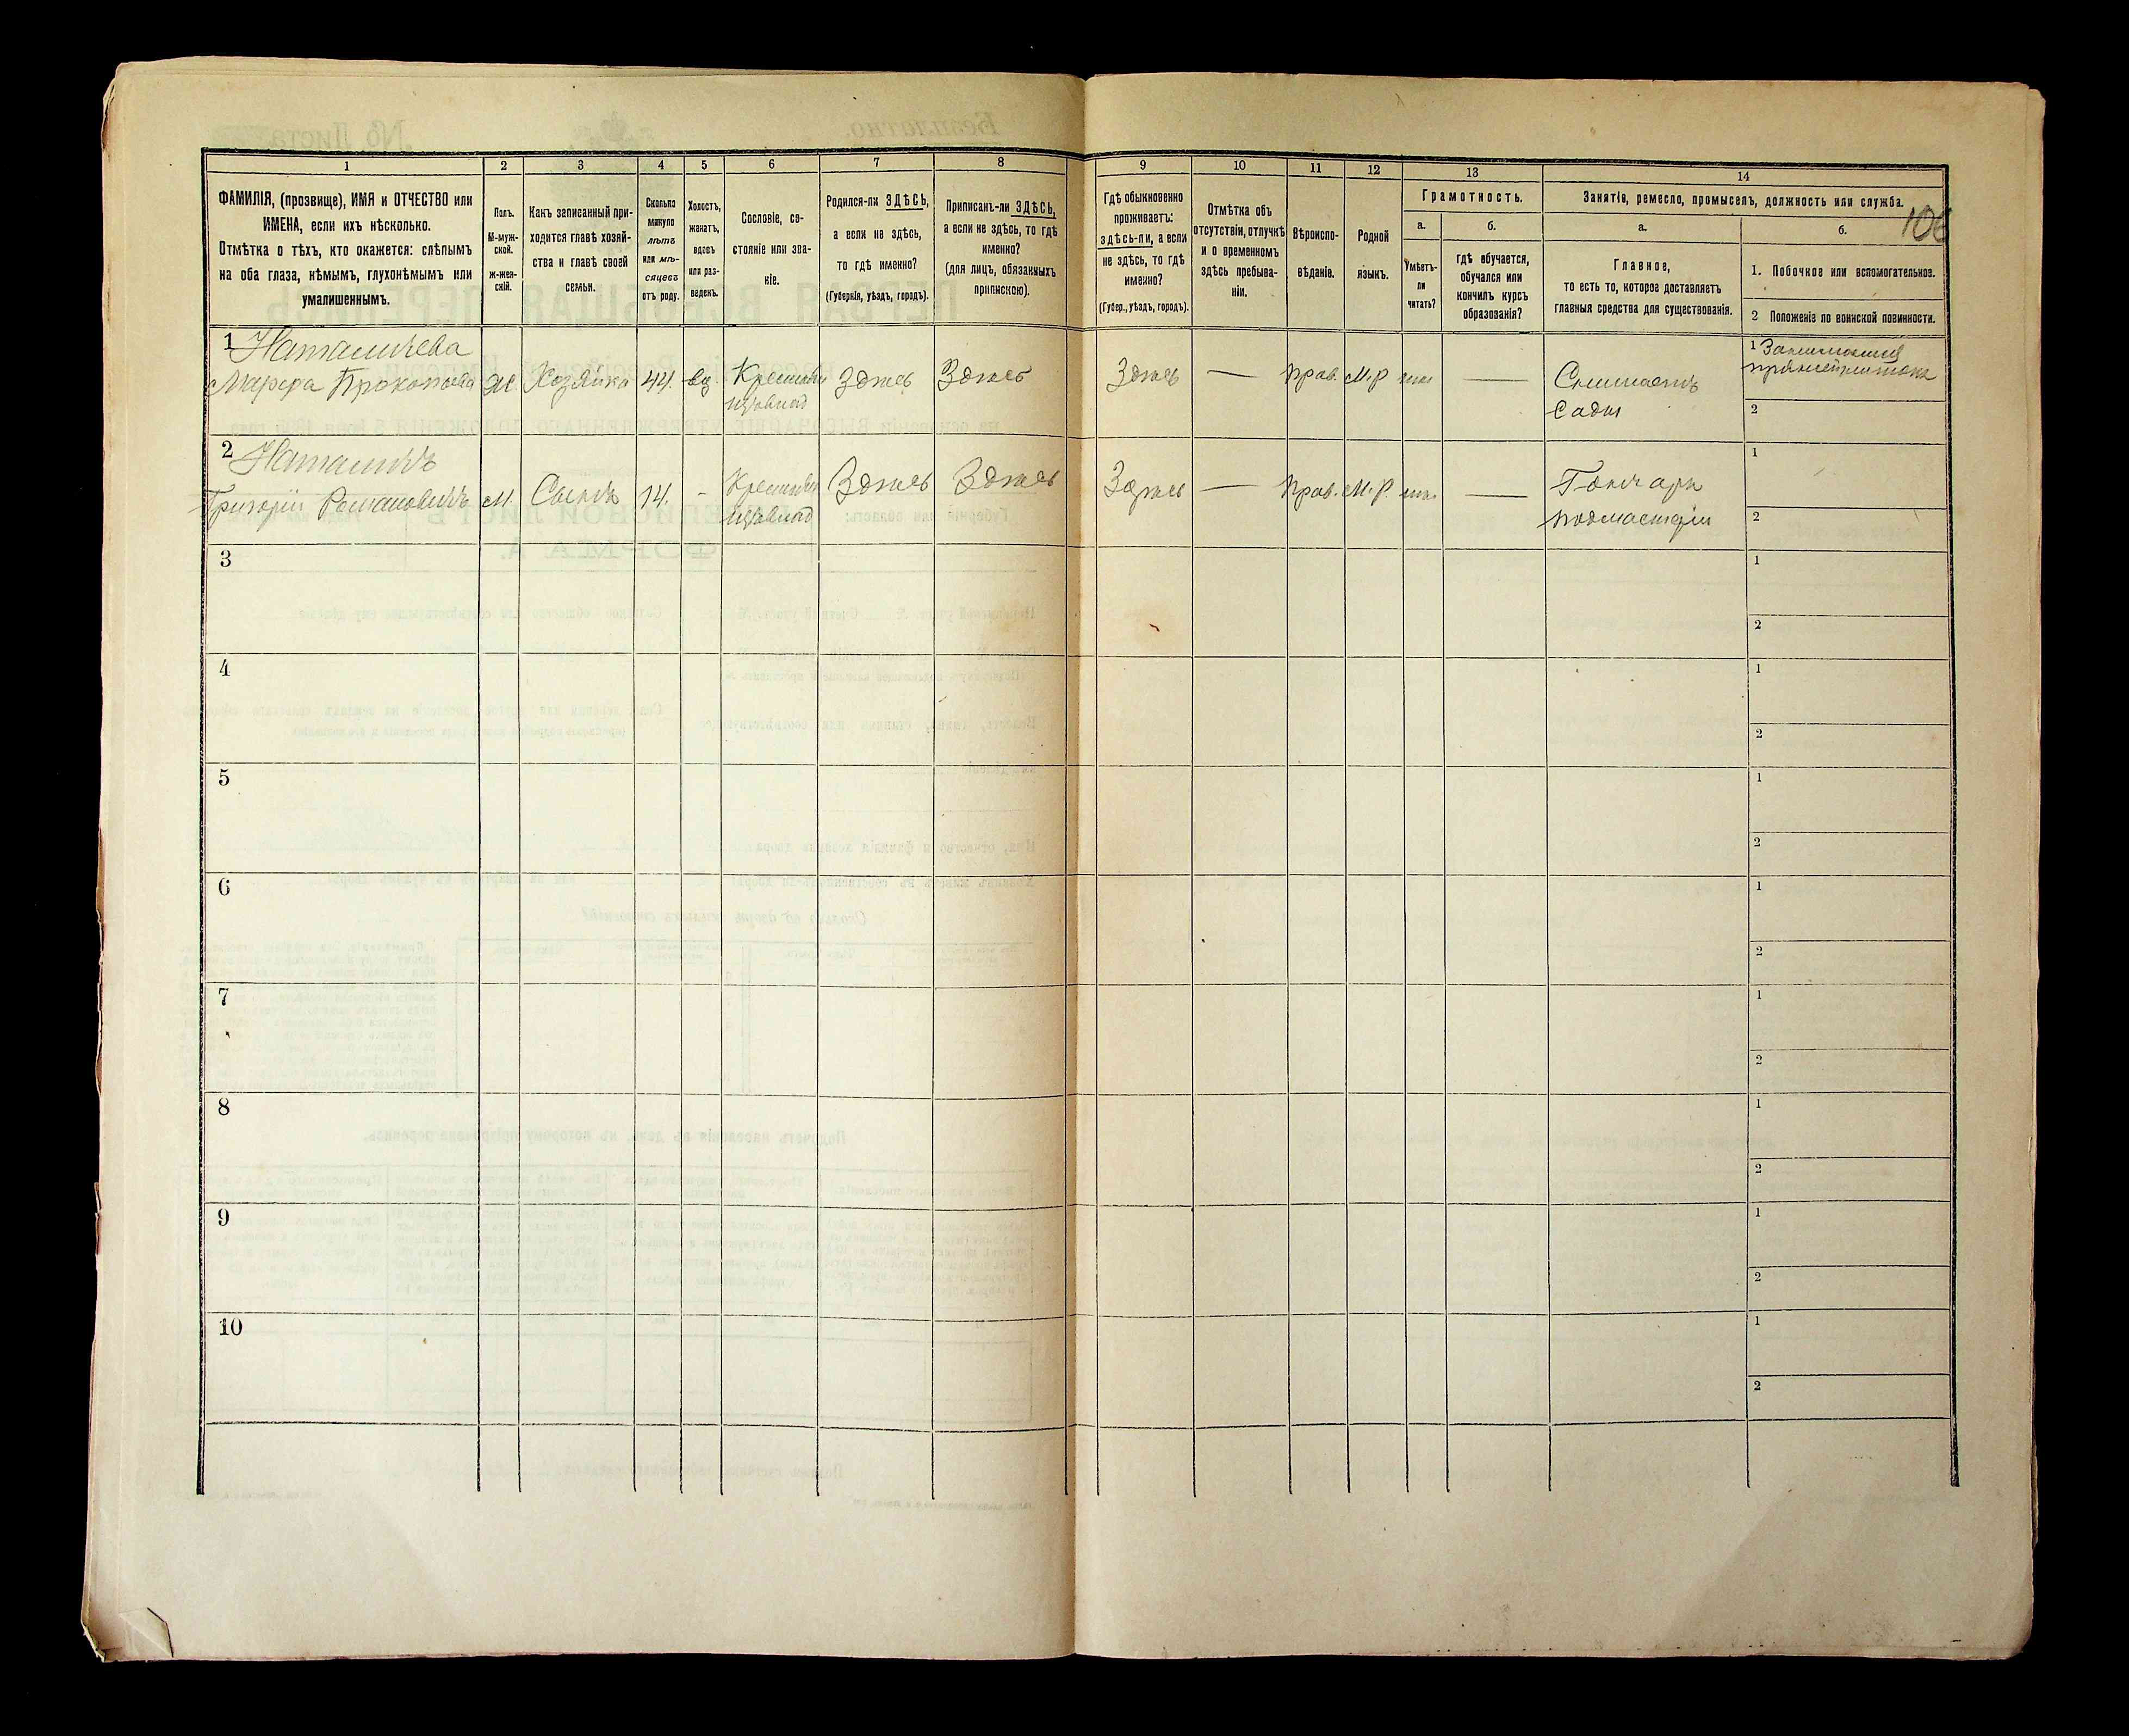 106
1
ФАМИЛІЯ, (прозвище), ИМЯ и ОТЧЕСТВО или
ИМЕНА, если ихъ нѣсколько.
Отмѣтка о тѣхъ, кто окажется: слѣпымъ
на оба глаза, нѣмымъ, глухонѣмымъ или
умалишеннымъ.
2
Полъ.
М-муж-
ской.
ж-жен-
скій.
3
Какъ записанный при-
ходится главѣ хозяй-
ства и главѣ своей
семьи.
4
Сколько
минуло
лѣтъ
или мѣ-
сяцевъ
отъ роду.
5
Холостъ,
женатъ,
вдовъ
или раз-
веденъ.
6
Сословіе, со-
стояніе или зва-
ніе.
7
Родился-ли ЗДѢСЬ,
а если не здѣсь,
то гдѣ именно?
(Губернія, уѣздъ, городъ).
8
Приписанъ-ли ЗДѢСЬ,
а если не здѣсь, то гдѣ
именно?
(для лицъ, обязанныхъ
припискою).
9
Гдѣ обыкновенно
проживаетъ:
здѣсь-ли, а если
не здѣсь, то гдѣ
именно?
(Губер., уѣздъ, городъ).
10
Отмѣтка объ
отсутствіи, отлучкѣ
и о временномъ
здѣсь пребыва-
ніи.
11
Вѣроиспо-
вѣданіе.
12
Родной
языкъ.
13
Грамотность.
а.
Умѣетъ-
ли
читать?
б.
гдѣ обучается,
обучался или
кончилъ курсъ
образованія?
14
Занятіе, ремесло, промыселъ, должность или служба.
а.
Главное,
то есть то, которое доставляетъ
главныя средства для существованія.
б.
1. Побочное или вспомогательное.
2 Положеніе по воинской повинности.
1
Марфа Прокопова
ж
Хозяйка
44.
вд
Здѣсь
Здѣсь
Здѣсь
—
Прав.
М.Р.
—
Сады
1
2
2
Григорій Романовичъ
М.
Сынъ
14.
-
Здѣсь
Здѣсь
Здѣсь
—
Прав.
М.Р.
—
Гончарь
1
2
3
1
2
4
1
2
5
1
2
6
1
2
7
1
2
8
1
2
9
1
2
10
1
2